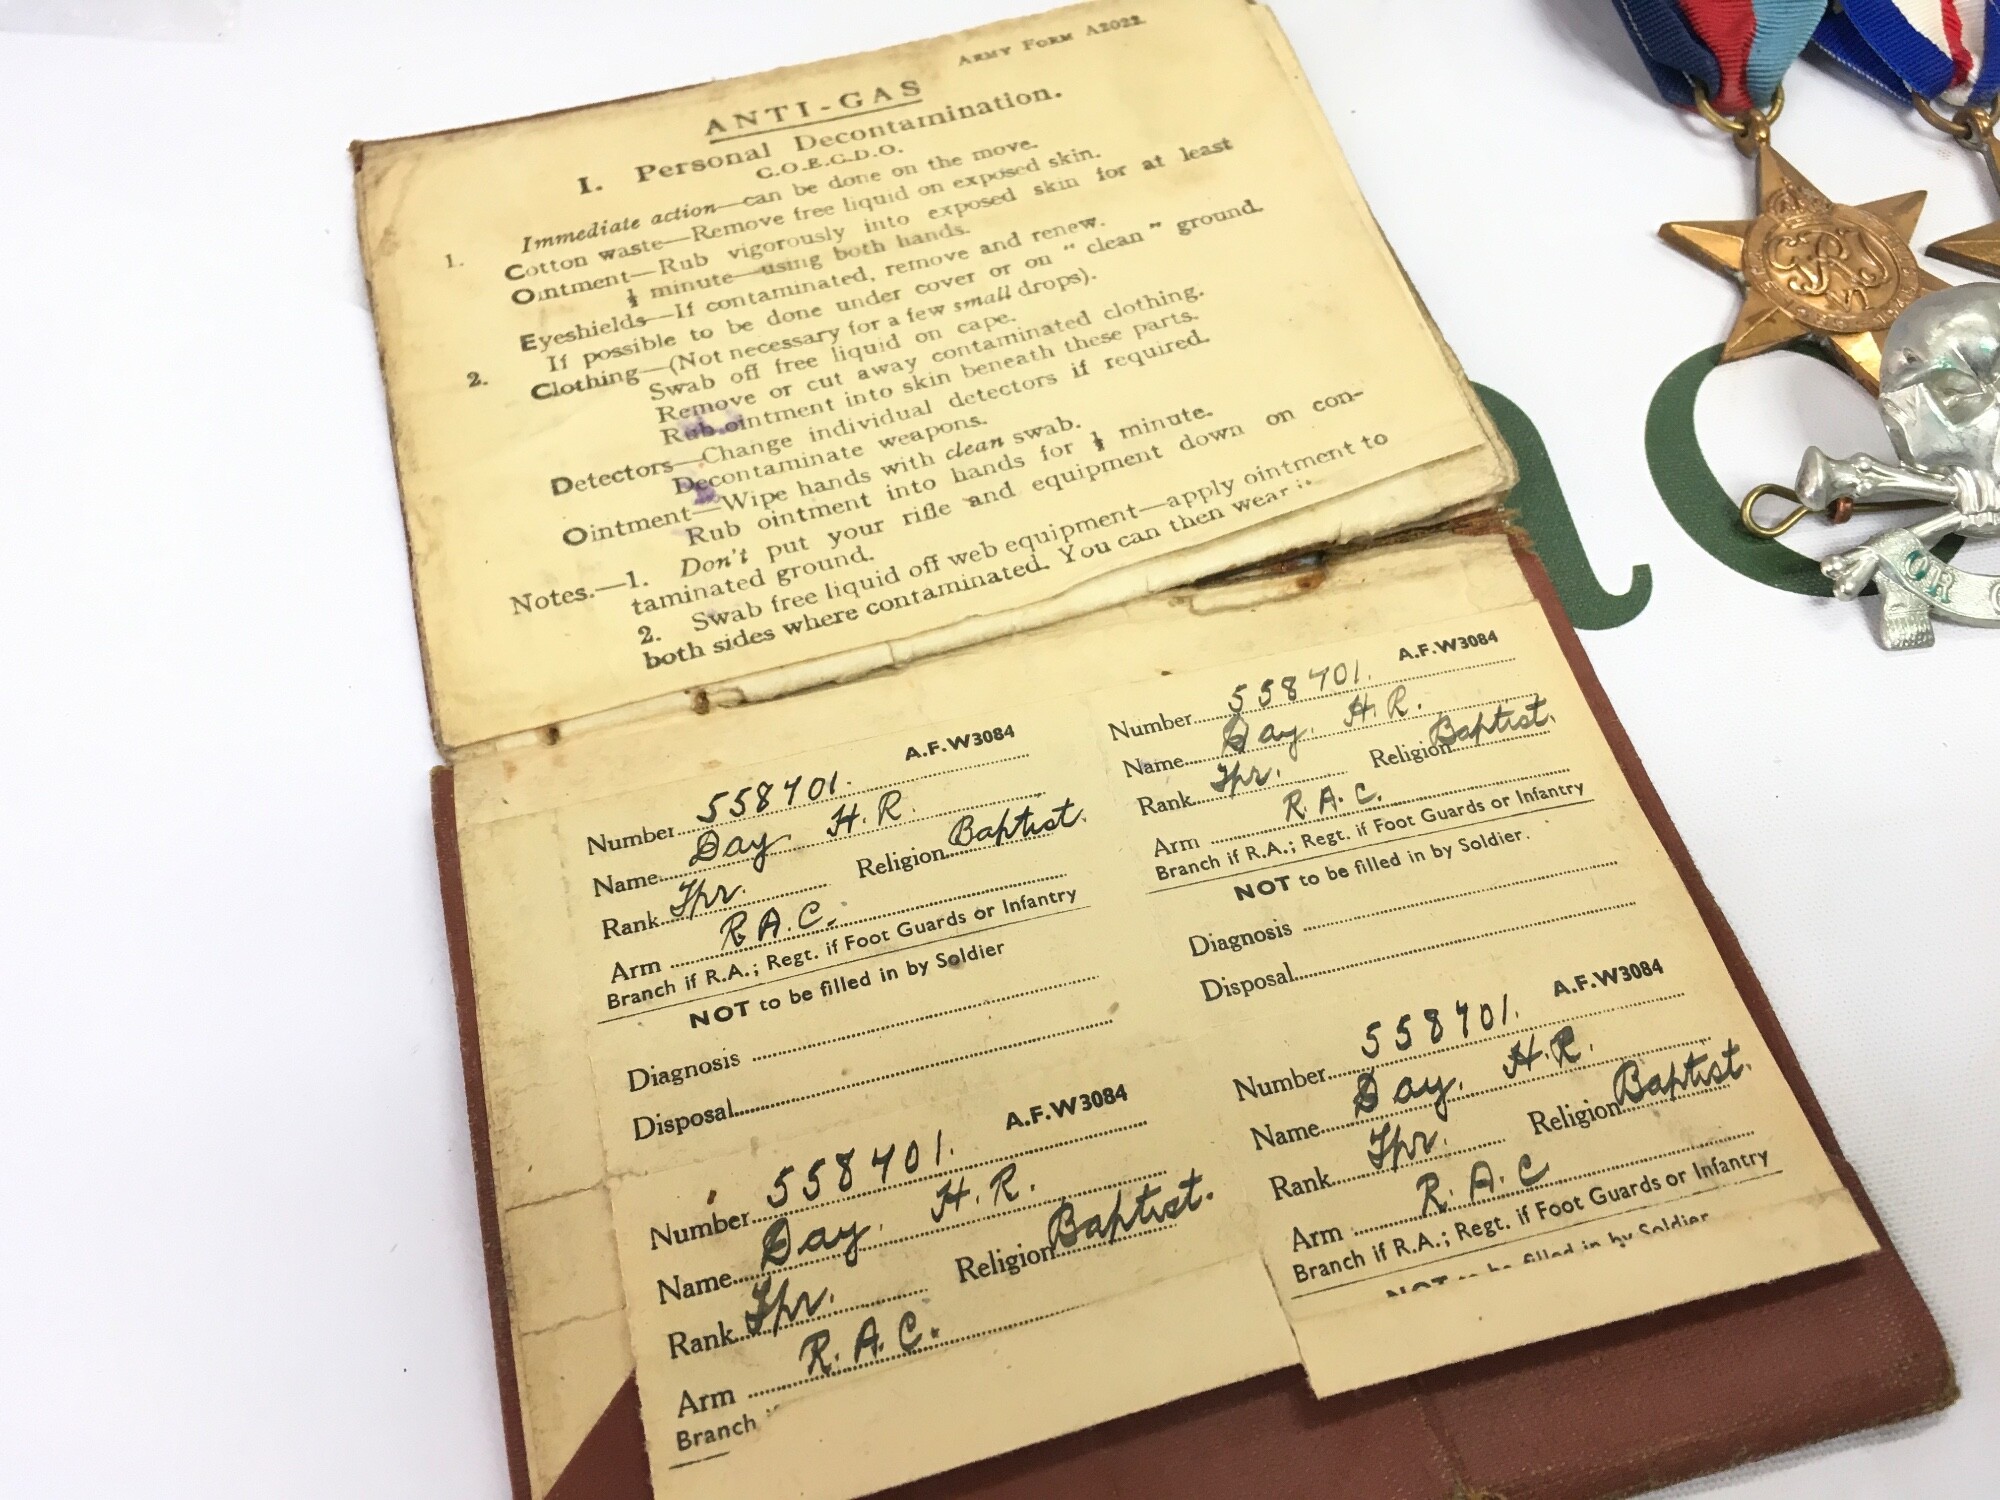 ARMY FORM A2022.
ANTI-GAS
I. Personal Decontamination.
C.O.E.C.D.O.
Immediate action—can be done on the move.
1. Cotton waste—Remove free liquid on exposed skin.
Ointment—Rub vigorously into exposed skin for at least
½ minute—using both hands.
Eyeshields—If contaminated, remove and renew.
If possible to be done under cover or on "clean" ground.
2. Clothing—(Not necessary for a few small drops).
Swab off free liquid on cape.
Remove or cut away contaminated clothing.
Rub ointment into skin beneath these parts.
Detectors—Change individual detectors if required.
Decontaminate weapons.
Ointment—Wipe hands with clean swab.
Rub ointment into hands for ½ minute.
Notes.—1. Don't put your rifle and equipment down on con-
taminated ground.
2. Swab free liquid off web equipment—apply ointment to
both sides where contaminated. You can then wear
A.F.W3084
Number 558701.
Name Day H.R.
Rank Tpr. Religion Baptist.
Arm R.A.C.
Branch if R.A.; Regt. if Foot Guards or Infantry
NOT to be filled in by Soldier
Diagnosis
Disposal
A.F.W3084
Number 558701.
Name Day. H.R.
Rank Tpr. Religion Baptist.
Arm R.A.C.
Branch if R.A.; Regt. if Foot Guards or Infantry
NOT to be filled in by Soldier.
Diagnosis
Disposal
A.F.W3084
Number 558701.
Name Day. H.R.
Rank Tpr. Religion Baptist.
Arm R.A.C.
Branch
A.F.W3084
Number 558701.
Name Day. H.R.
Rank Tpr. Religion Baptist.
Arm R.A.C
Branch if R.A.; Regt. if Foot Guards or Infantry
NOT to be filled in by Soldier
OR